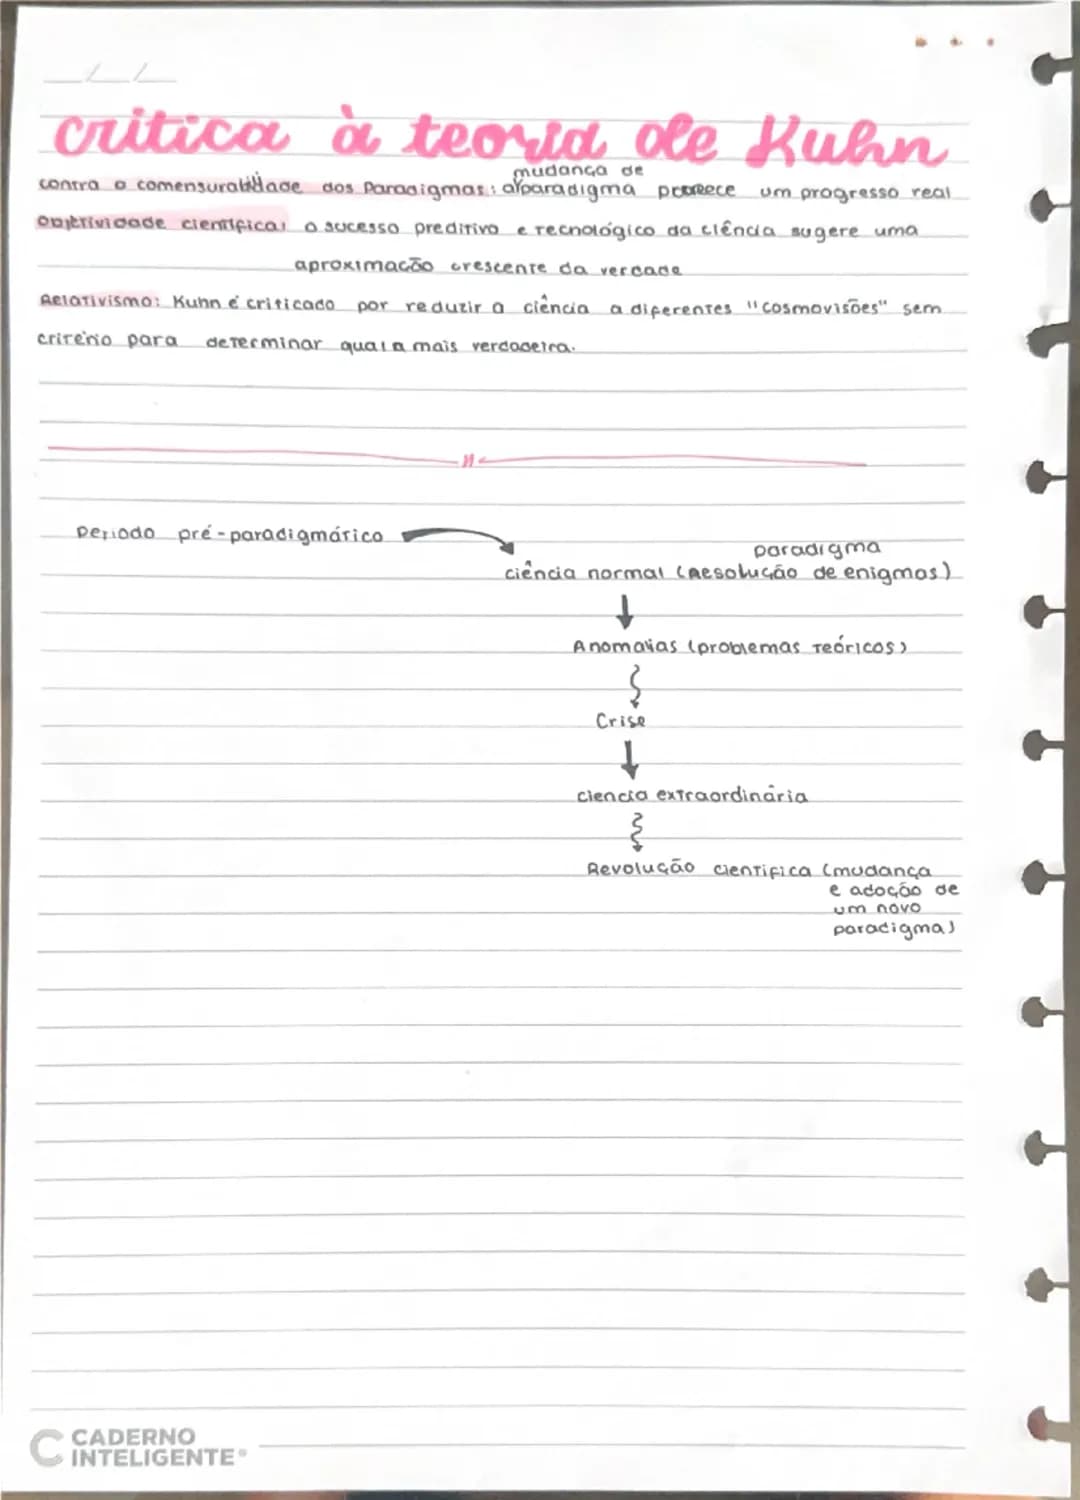 critica à teoria de Kuhn
mudança de
contra o comensurabilidade dos Paradigmas: a paradigma parece um progresso real
objetividade cientifica: o sucesso preditivo e tecnológico da ciência sugere uma
aproximação crescente da verdade
Relativismo: Kuhn é criticado por reduzir a ciência a diferentes "cosmovisões" sem
critério para determinar qual a mais verdadeira.
Periodo pré-paradigmático
paradigma
ciência normal (Resolução de enigmas)
Anomalias (problemas teóricos)
Crise
ciencia extraordinária
Revolução cientifica (mudança
e adoção de
um novo
paradigma)
CADERNO
INTELIGENTE®